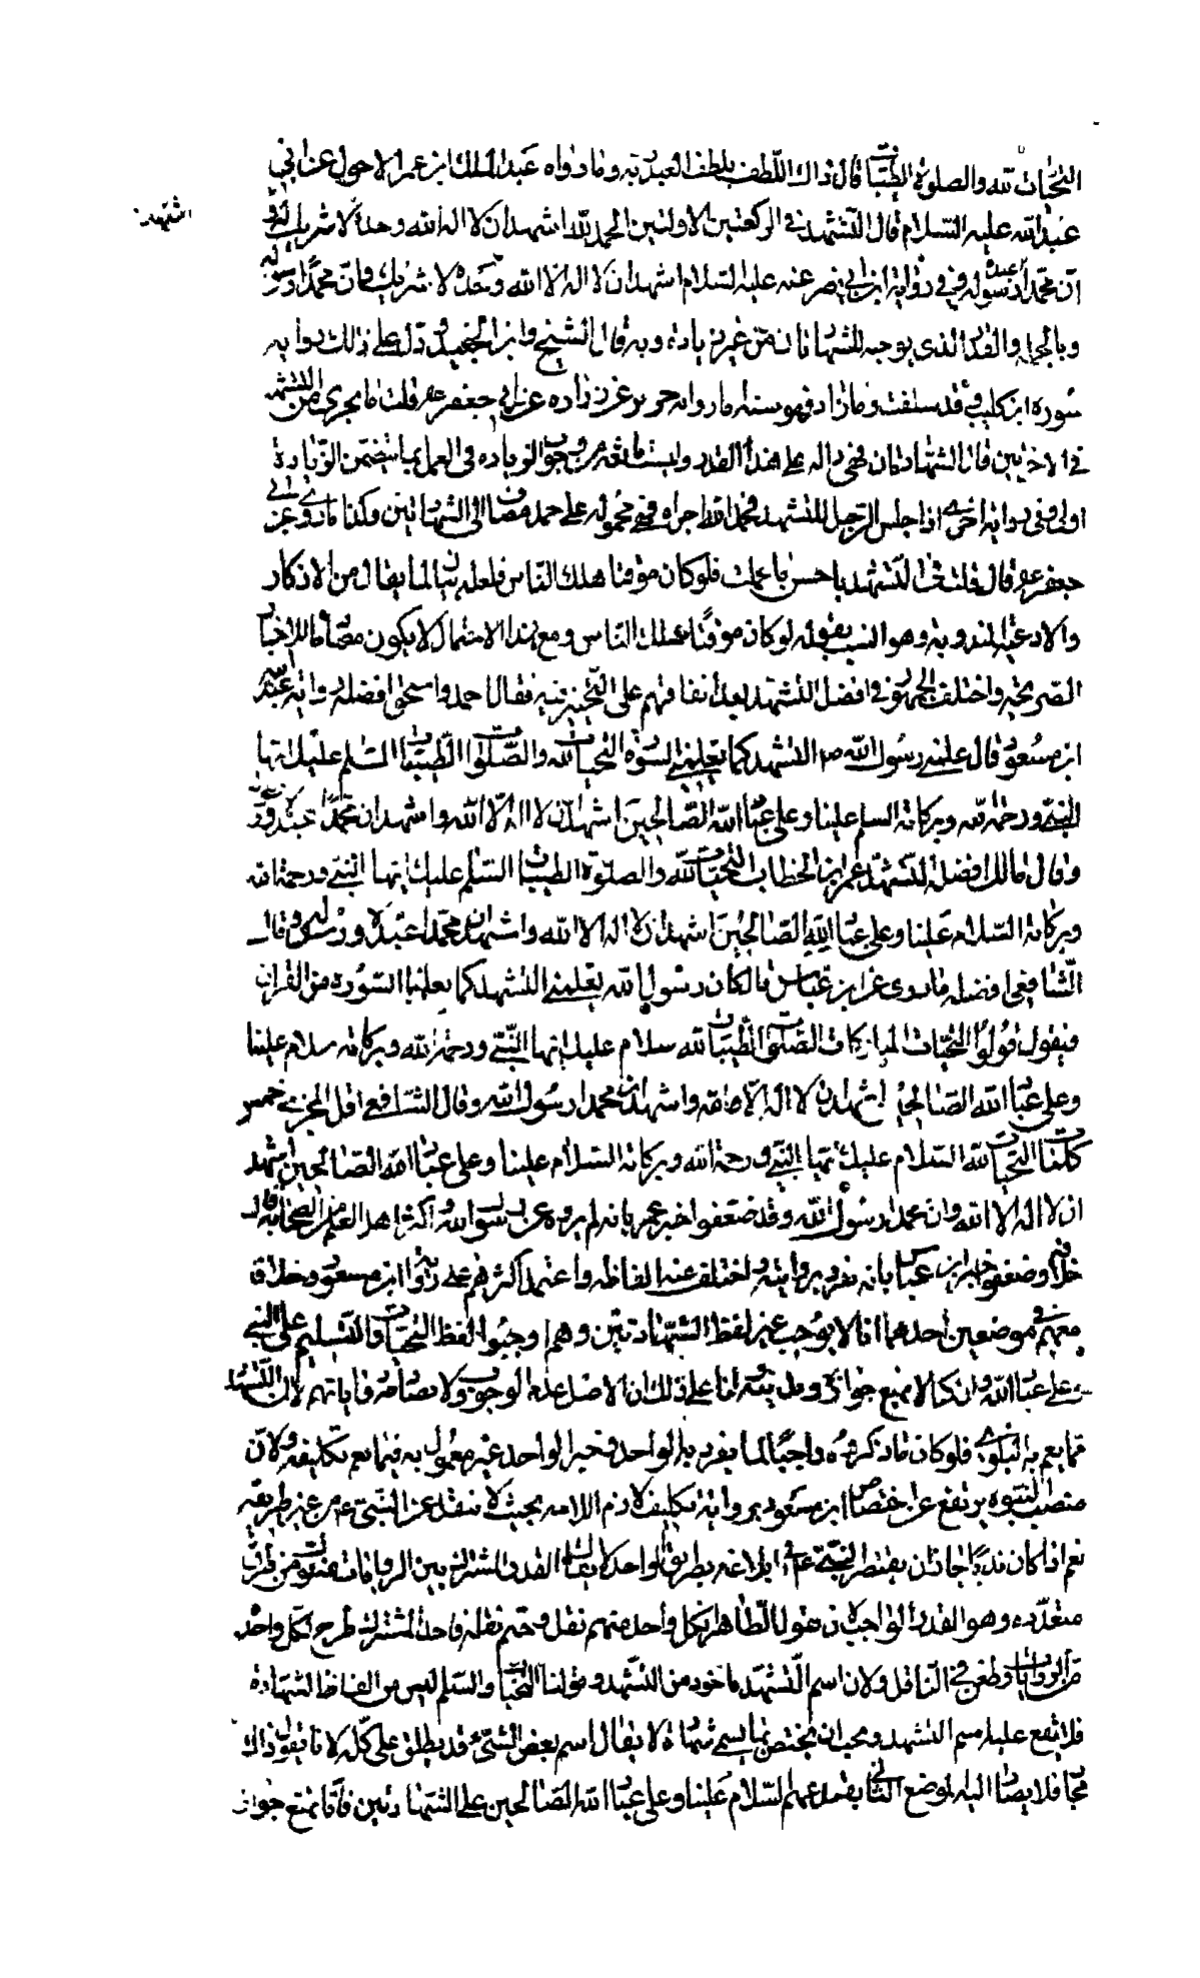 التحيات لله والصلوة الطيبات قال ذاك اللطف يلطف العبد ربه وما رواه عبد الملك ابن عمر الاحول عن ابي
عبد الله عليه السلام قال التشهد في الركعتين الاولتين الحمد لله اشهد ان لا اله الا الله وحده لا شريك له و
اشهد
ان محمدا عبده ورسوله وفي رواية ابن ابي نصر عنه عليه السلام اشهد ان لا اله الا الله وحده لا شريك له وان محمدا رسوله
وبالجملة والقدر الذي يوجبه الشهادتان من غير زيادة وبه قال الشيخ وابن الجنيد ودل على ذلك رواية
سورة ابن كليب وقد سلفت وما زاد فهو سنة ما رواه حريز عن زراره عن ابي جعفر ع قلت ما يجزي من التشهد
في الاخرتين قال الشهادتان فهي دالة على هذا القدر وليست مانعة من وجوب الزيادة في العمل بما يتضمن الزيادة
اولى وفي رواية اخرى اذا جلس الرجل للتشهد فحمد الله اجزاه فهي محمولة على حمد مضاف الى الشهادتين وكذا ما روي عن ابي
جعفر ع قال قلت التشهد باحسن ما علمت فلو كان موقتا هلك الناس فلعله بيان لما يقال من الاذكار
والادعية المندوبة وهو النسب بقوله لو كان موقتا هلك الناس ومع هذا الاحتمال لا يكون مصادما للاخبار
الصريحة واختلف الجمهور في افضل التشهد بعد اتفاقهم على التخيير فيه فقال احمد واسحق افضله رواية عبد الله
ابن مسعود قال علمني رسول الله ص التشهد كما يعلمني السورة التحيات لله والصلوات الطيبات السلم عليك ايها
النبي ورحمة الله وبركاته السلم علينا وعلى عباد الله الصالحين اشهد ان لا اله الا الله واشهد ان محمدا عبده ورسوله
وقال مالك افضله التشهد عمر ابن الخطاب التحيات لله والصلوة الطيبات السلم عليك ايها النبي ورحمة الله
وبركاته السلام علينا وعلى عباد الله الصالحين اشهد ان لا اله الا الله واشهد ان محمدا عبده ورسوله وقال
الشافعي افضله ما روى عن ابن عباس قال كان رسول الله يعلمني التشهد كما يعلمنا السورة من القران
فيقول قولوا التحيات المباركات الصلوات الطيبات لله سلام عليك ايها النبي ورحمة الله وبركاته سلام علينا
وعلى عباد الله الصالحين اشهد ان لا اله الا الله واشهد ان محمدا رسول الله وقال الشافعي اقل المجزي خمس
كلمات التحيات لله السلام عليك ايها النبي ورحمة الله وبركاته السلام علينا وعلى عباد الله الصالحين اشهد
ان لا اله الا الله وان محمدا رسول الله وقد ضعفوا خبر عمر بانه لم يروه عن رسول الله واكثر اهل العلم من الصحابة قال
خلافه وضعفوا خبر ابن عباس بانه تفرد بروايته واختلف عنه الفاظه واعتمد اكثرهم على رواية ابن مسعود وخلافا
معهم في موضعين احدهما انا لا نوجب غير لفظ الشهادتين وهم اوجبوا لفظ التحيات والتسليم على النبي
وعلى عباد الله وان كنا لا نمنع جوازه ويدل بينه لنا على ذلك ان الاصل عدم الوجوب ولا مصادم رواياتهم لان التشهد
مما يعم به البلوى فلو كان ما ذكروه واجبا لما يفرد به الواحد وخبر الواحد غير معمول به فيما يعم تكليفه ولان
منصب النبوة يرتفع عن اختصاص ابن مسعود برواية تكليف لازم اللامة بحيث لا ينقل عن النبي ص من غير طريقه
نعم اذا كان ندبا جاز ان يقتصر النبي ع في ابلاغه بطريق الواحد لا يقال القدر المشترك بين الروايات منقول من طرق
متعددة وهو القدر الواجب لانا نقول الظاهر ان كل واحد منهم نقل وحتم نقله فاخذ المشترك طرح لكل واحد
من الروايات وطعن في الناقل ولان اسم التشهد ماخوذ من التشهد وقولنا التحيات والسلم ليس من الفاظ الشهادة
فلا يقع عليه اسم التشهد ويجب ان يختص بما يسم شهادة لا يقال اسم بعض الشيء قد يطلق على كله لانا نقول ذاك
مجاز فلا يصار اليه الموضع الثاني يقدم عليهم السلام علينا وعلى عباد الله الصالحين على الشهادتين فانا نمنع جواز